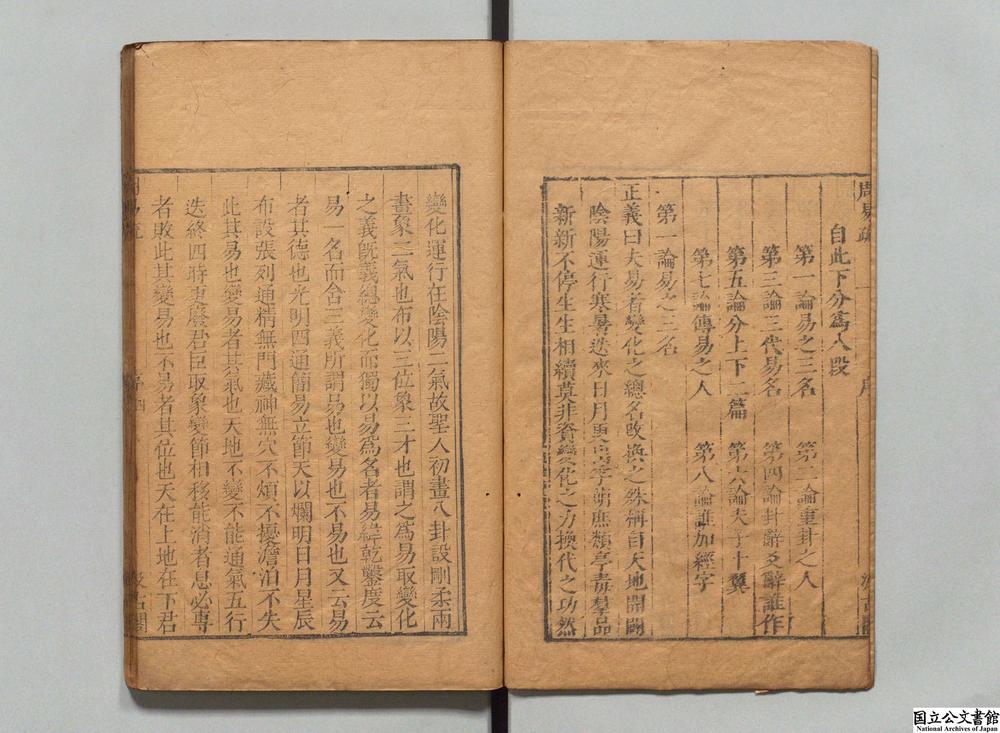 周易疏
自此下分爲八段
第一論易之三名　第二論重卦之人
第三論三代易名　第四論卦辭爻辭誰作
第五論分上下二篇　第六論夫子十翼
第七論傳易之人　第八論誰加經字
第一論易之三名
正義曰夫易者變化之總名改換之殊稱自天地開闢
陰陽運行寒暑迭來日月更出孚萌庶類亭毒羣品
新新不停生生相續莫非資變化之力換代之功然
變化運行在陰陽二氣故聖人初畫八卦設剛柔兩
畫象二氣也布以三位象三才也謂之爲易取變化
之義旣義總變化而獨以易爲名者易緯乾鑿度云
易一名而含三義所謂易也變易也不易也又云易
者其德也光明四通簡易立節天以爛明日月星辰
布設張列通精無門藏神無穴不煩不擾澹泊不失
此其易也變易者其氣也天地不變不能通氣五行
迭終四時更廢君臣取象變節相移能消者息必專
者敗此其變易也不易者其位也天在上地在下君
国立公文書館
National Archives of Japan